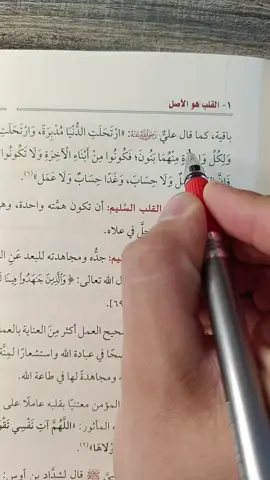 ١- القلب هو الأصل
باقية، كما قال عليٌّ رضي الله عنه: «ارْتَحَلَتِ الدُّنْيَا مُدْبِرَةً، وَارْتَحَلَتِ
وَلِكُلِّ مِنْهُمَا بَنُونَ؛ فَكُونُوا مِنْ أَبْنَاءِ الْآخِرَةِ وَلَا تَكُونُوا
وَلَا حِسَابَ، وَغَدًا حِسَابٌ وَلَا عَمَلَ»(١).
القلب السَّليم: أن تكون همَّته واحدة، وهي
جلَّ في علاه.
السليم: جدُّه ومجاهدته للبعد عن
الله تعالى: ﴿وَالَّذِينَ جَاهَدُوا فِينَا
٦٩].
صحيح العمل أكثر مِنَ العناية بالعمل
في عبادة الله واستشعارًا لـمِنَّة
ومجاهدةً لها في طاعة الله.
المؤمن معتنيًا بقلبه عاملًا على
المأثور: «اللَّهُمَّ آتِ نَفْسِي
(٢).
ﷺ قال لشدَّاد بن أوس: